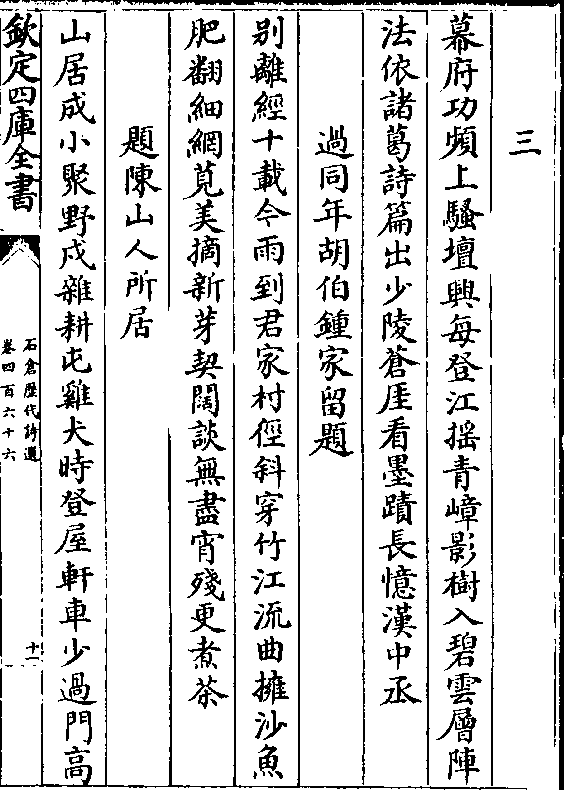 三
幕府功頻上騷壇興每登江揺青嶂影樹入碧雲層陣
法依諸葛詩篇出少陵蒼厓看墨蹟長憶漢中丞
過同年胡伯鍾家留題
别離經十載今雨到君家村徑斜穿竹江流曲擁沙魚
肥翻細網莧美摘新芽契闊談無盡宵殘更煮茶
題陳山人所居
山居成小聚野戍雜耕屯雞犬時登屋軒車少過門高
欽定四庫全書
石倉歴代詩選
卷四百六十六
十一